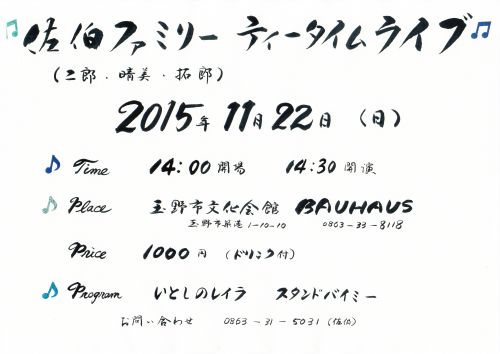 佐伯ファミリー ティータイムライブ
(三郎・晴美・拓郎)
2015年 11月 22日 (日)
Time 14:00 開場 14:30 開演
Place 玉野市文化会館 BAUHAUS
玉野市築港1-10-10 0863-33-8118
Price 1000円 (ドリンク付)
Program いとしのレイラ スタンドバイミー
お問い合わせ 0863-31-5031 (佐伯)